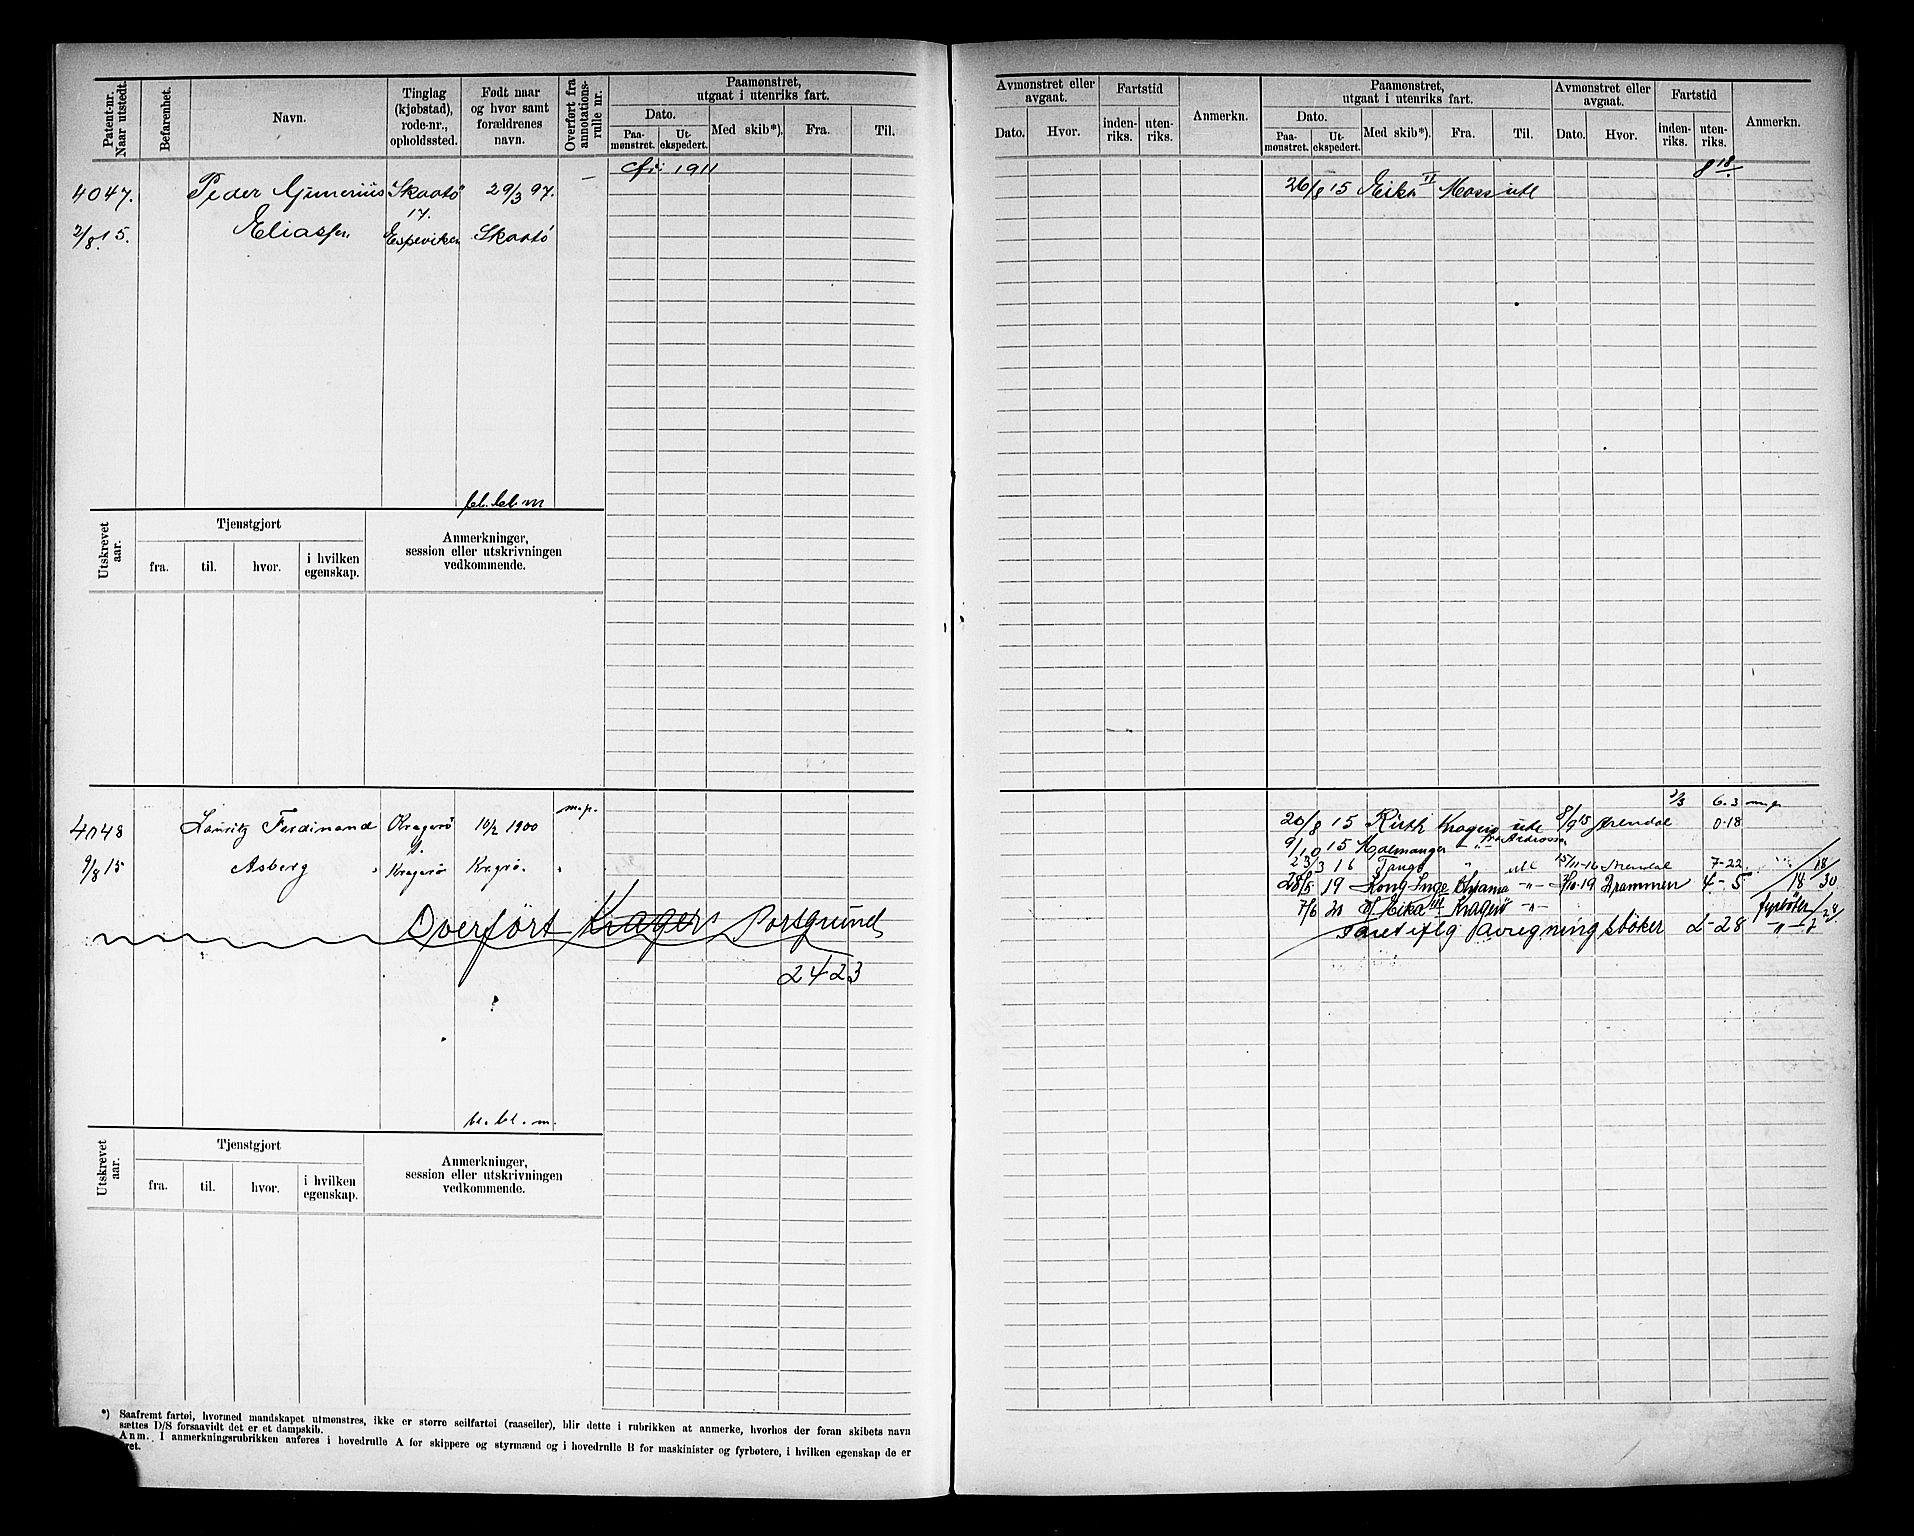 Patent-nr. Naar utstedt.
Befarenhet.
Navn.
Tinglag (kjøbstad), rode-nr., opholdssted.
Født naar og hvor samt forældrenes navn.
Overført fra annotations-rulle nr.
Paamønstret, utgaat i utenriks fart.
Dato.
Paa-mønstret.
Ut-ekspedert.
Med skib*).
Fra.
Til.
1911
4047. Peder Gunerius Skaatø 29/3 97. –
17.
2/8. 15. Eliassen Espeviken Skaatø
bl. bl. m
Utskrevet aar.
Tjenstgjort
fra. til. hvor. i hvilken egenskap.
Anmerkninger, session eller utskrivningen vedkommende.
m.p.
4048 Lauritz Ferdinand Kragerø 10/2 1900
9/8 15 Asberg Kragerø Kragerø.
Overført Kragerø Porsgrund
2423
bl. bl. m.
Utskrevet aar.
Tjenstgjort
fra. til. hvor. i hvilken egenskap.
Anmerkninger, session eller utskrivningen vedkommende.
*) Saafremt fartøi, hvormed mandskapet utmønstres, ikke er større seilfartøi (raaseiler), blir dette i rubrikken at anmerke, hvorhos der foran skibets navn
sættes D/S forsaavidt det er et dampskib.
Anm. I anmerkningsrubrikken anføres i hovedrulle A for skippere og styrmænd og i hovedrulle B for maskinister og fyrbøtere, i hvilken egenskap de er
ret.
Avmønstret eller avgaat.
Dato. Hvor.
Fartstid
inden-riks. uten-riks.
Anmerkn.
Paamønstret, utgaat i utenriks fart.
Dato.
Paa-mønstret. Ut-ekspedert.
Med skib*). Fra. Til.
Avmønstret eller avgaat.
Dato. Hvor.
Fartstid
inden-riks. uten-riks.
Anmerkn.
8 18.
26/8 15 Eika II Moss utl
2/3 6.3 m.p.
20/8 15 Ruth Kragerø utl 8/9 15 Arendal 0-18
9/10 15 Holmanger
23/3 16 Tango " utl 15/11-16 Arendal 7-22
28/5 19 Kong Inge Khania -"- Drammen 4-5 18/30
7/6 20 Eika III Kragerø -"- fyrbøter
Faret iflg avregningsbøker 2-28 -"-